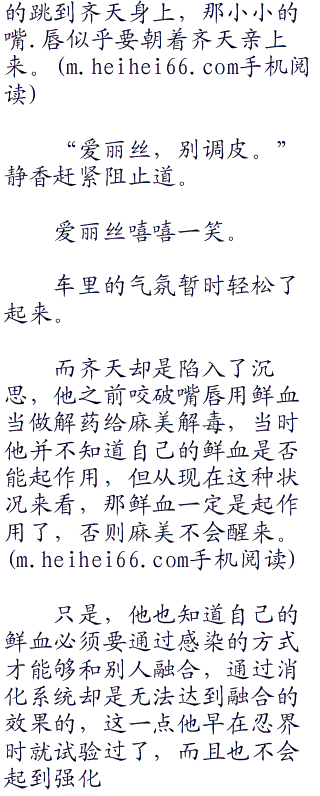 的跳到齐天身上，那小小的
嘴.唇似乎要朝着齐天亲上
来。(m.heihei66.com手机阅
读)
“爱丽丝，别调皮。”
静香赶紧阻止道。
爱丽丝嘻嘻一笑。
车里的气氛暂时轻松了
起来。
而齐天却是陷入了沉
思，他之前咬破嘴唇用鲜血
当做解药给麻美解毒，当时
他并不知道自己的鲜血是否
能起作用，但从现在这种状
况来看，那鲜血一定是起作
用了，否则麻美不会醒来。
(m.heihei66.com手机阅读)
只是，他也知道自己的
鲜血必须要通过感染的方式
才能够和别人融合，通过消
化系统却是无法达到融合的
效果的，这一点他早在忍界
时就试验过了，而且也不会
起到强化